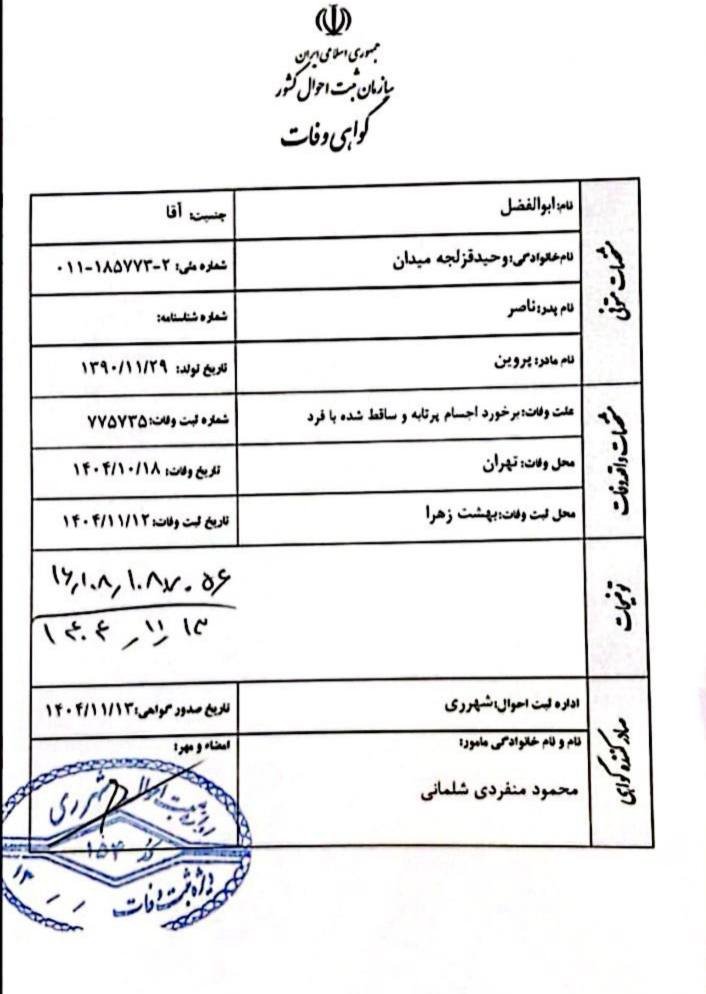 جمهوری اسلامی ایران
سازمان ثبت احوال کشور
گواهی وفات
مشخصات متوفی
نام: ابوالفضل
جنسیت: آقا
نام خانوادگی: وحیدقزلجه میدان
شماره ملی: ۰۱۱-۱۸۵۷۷۳-۲
نام پدر: ناصر
شماره شناسنامه:
نام مادر: پروین
تاریخ تولد: ۱۳۹۰/۱۱/۲۹
مشخصات واقعه وفات
علت وفات: برخورد اجسام پرتابه و ساقط شده با فرد
شماره ثبت وفات: ۷۷۵۷۳۵
محل وفات: تهران
تاریخ وفات: ۱۴۰۴/۱۰/۱۸
محل ثبت وفات: بهشت زهرا
تاریخ ثبت وفات: ۱۴۰۴/۱۱/۱۲
توضیحات
۱۴۰۴/۱۱/۱۳
صادر کننده گواهی
اداره ثبت احوال: شهرری
تاریخ صدور گواهی: ۱۴۰۴/۱۱/۱۳
نام و نام خانوادگی مامور:
امضاء و مهر:
محمود منفردی شلمانی
اداره ثبت احوال شهرری
کد ۱۵۴
ویژه ثبت وفات